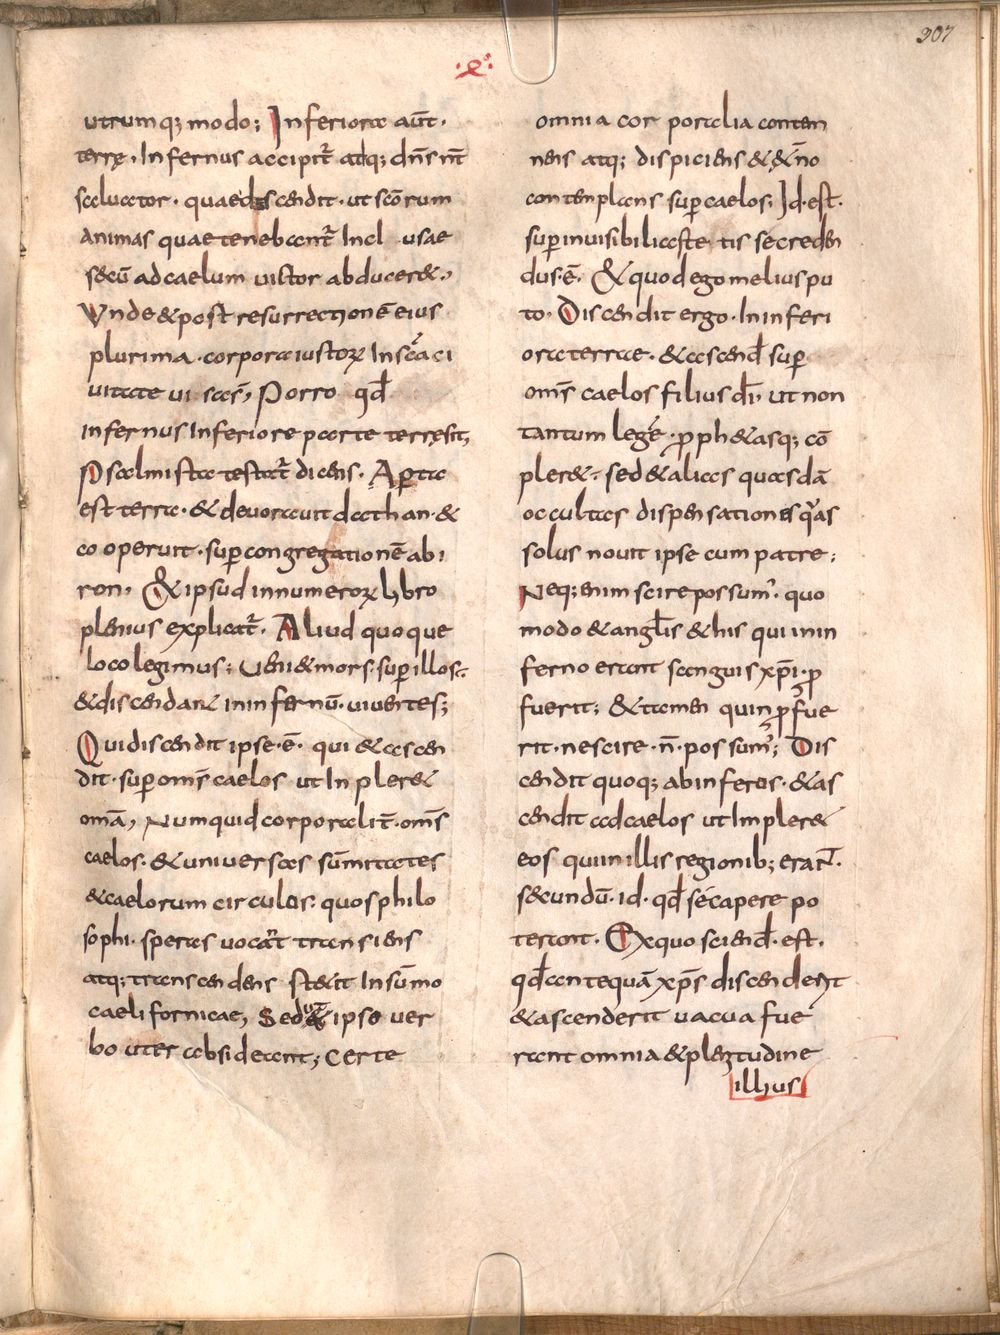 307
utrumq; modo; Inferiora aūt.
terrę. Infernus accipit̄ atq; dn̄s nt̄
saluator. quaedescendit. ut sc̄orum
animas quae tenebant̄ Incl usae
secū ad caelum uictor abduceret.,
Vnde & post resurrectionē eius
plurima. corpora iustoꝝ In sc̄a ci
uitate ui sa es̄, Porro qd̄
infernus Inferiore parte terrę sit,
Psalmista testat̄ dicens. Aꝑta
est terra. & deuorauit dathan. &
co operuit. suꝑ congregationē abi
ron, & ipsud in numeroꝝ libro
plenius explicat̄. Aliud quoque
loco legimus; Ueniet mors. suꝑ illos.
& discendant in infernū. uiuentes;
Qui discendit ipse. ē. qui & ascen
dit. suꝑ om̄s caelos ut Inpleret
om̄a, Numquid corporalit̄. om̄s
caelos. & uniuersas sūmitates
& caelorum circulos. quos philo
sophi. speras uocant̄ transiens
atq; transcendens stetit In sūmo
caeli fornicae, Sed ipse uer
bo uter absideant; Certe
omnia corporalia contem
nens atq; dispiciens & ęt̄no
contemplans suꝑ caelos; Id. est.
suꝑ inuisibilia ste tis se creden
dus. ē. & quod ego melius pu
to. Discendit ergo. In inferi
ora terrae. & ascend̄ suꝑ
om̄s caelos filius dī, ut non
tantum legē. ꝓphetasq; cō
pleret. sed & alias quasdā
occultas dispensationes q̄as
solus nouit ipse cum patre;
Neq; enim scire possum'. quo
modo & angl̄is & his qui in in
ferno erant sanguis xp̄i. ꝓ
fuerit; & tamen quin ꝓfue
rit. nescire. n̄. possum'; Dis
cendit quoq; ab inferos. & as
cendit ad caelos ut Impleret
eos qui in illis regionib; erant.
secundū. id. qd̄ se capere po
terant. Ex quo sciend̄. est.
qd̄ antequā xp̄s discenderit
& ascenderit uacua fue
rant omnia & plenitudine
illius